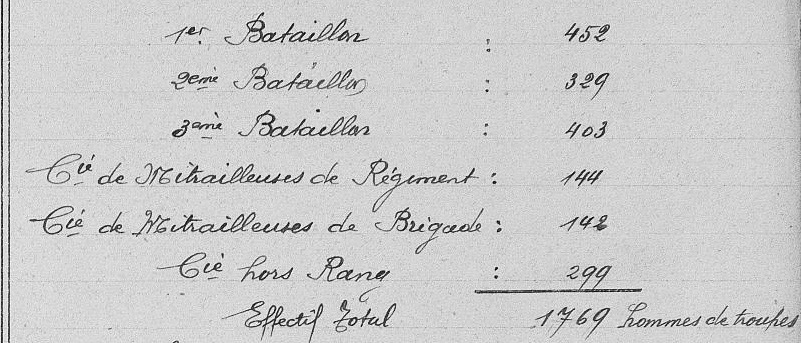 1er Bataillon : 452
2eme Bataillon : 329
3eme Bataillon : 403
Cie de Mitrailleuses de Régiment : 144
Cie de Mitrailleuses de Brigade : 142
Cie hors Rang : 299
Effectif Total 1769 hommes de troupes